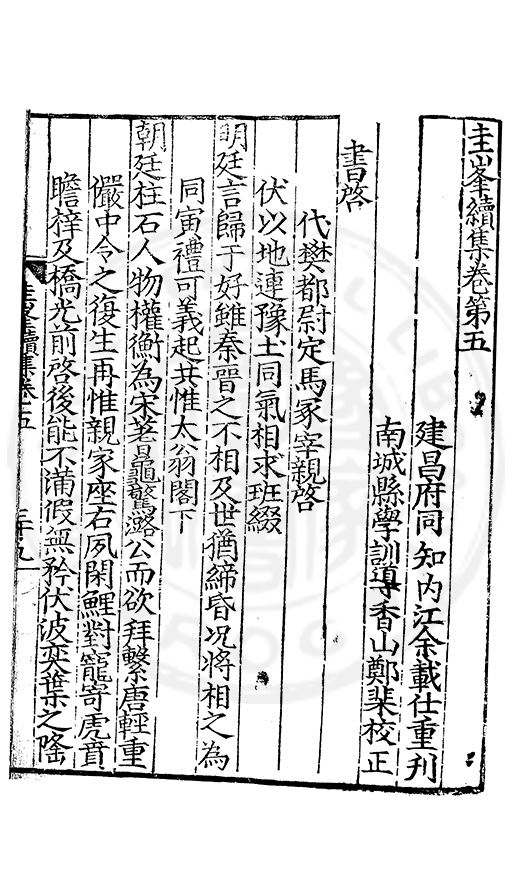 圭峯續集卷第五
建昌府同知内江余載仕重刋
南城縣學訓導香山鄭棐校正
書啓
代樊都尉定馬冢宰親啓
伏以地連豫土同氣相求班綴
明廷言歸于好雖秦晉之不相及世猶締昏况將相之為
同寅禮可義起共惟太翁閣下
朝廷柱石人物權衡為宋蓍龜驚潞公而欲拜繫唐輕重
儼中令之復生再惟親家座右夙閑鯉對寵寄虎賁
瞻梓及橋光前啓後能不滿假無矜伏波奕葉之隆
圭峯續集卷五